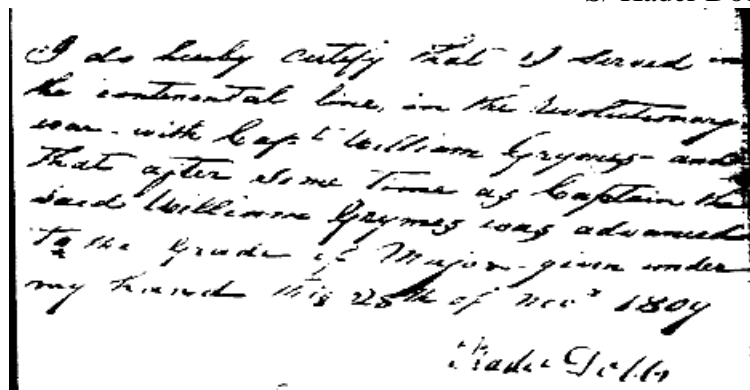 I do hereby certify that I served in
the continental line, in the revolutionary
war - with Capt William Grymes - and
that after some time as Captain the
said William Grymes was advanced
to the grade of Major - given under
my hand this 28th of Novr 1809